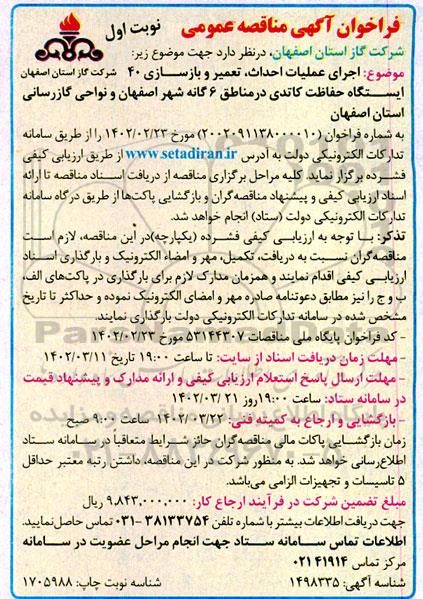 فراخوان آگهی مناقصه عمومی
نوبت اول
شرکت گاز استان اصفهان
شرکت گاز استان اصفهان، درنظر دارد جهت موضوع زیر:
موضوع: اجرای عملیات احداث، تعمیر و بازسازی ۴۰
ایستگاه حفاظت کاتدی درمناطق ۶ گانه شهر اصفهان و نواحی گازرسانی
استان اصفهان
به شماره فراخوان (۲۰۰۲۰۹۱۱۳۸۰۰۰۰۱۰) مورخ ۱۴۰۲/۰۲/۲۳ را از طریق سامانه
تدارکات الکترونیکی دولت به آدرس www.setadiran.ir از طریق ارزیابی کیفی
فشرده برگزار نماید. کلیه مراحل برگزاری مناقصه از دریافت اسناد مناقصه تا ارائه
اسناد ارزیابی کیفی و پیشنهاد مناقصه‌گران و بازگشایی پاکت‌ها از طریق درگاه سامانه
تدارکات الکترونیکی دولت (ستاد) انجام خواهد شد.
تذکر: با توجه به ارزیابی کیفی فشرده (یکپارچه)در این مناقصه، لازم است
مناقصه‌گران نسبت به دریافت، تکمیل، مهر و امضاء الکترونیک و بارگذاری اسناد
ارزیابی کیفی اقدام نمایند و همزمان مدارک لازم برای بارگذاری در پاکت‌های الف،
ب و ج را نیز مطابق دعوتنامه صادره مهر و امضای الکترونیک نموده و حداکثر تا تاریخ
مشخص شده در سامانه تدارکات الکترونیکی دولت بارگذاری نمایند.
- کد فراخوان پایگاه ملی مناقصات ۵۳۱۴۴۳۰۷ مورخ ۱۴۰۲/۰۲/۲۳
- مهلت زمان دریافت اسناد از سایت: تا ساعت ۱۹:۰۰ تاریخ ۱۴۰۲/۰۳/۱۱
- مهلت ارسال پاسخ استعلام ارزیابی کیفی و ارائه مدارک و پیشنهاد قیمت
در سامانه ستاد: ساعت ۱۹:۰۰ روز ۱۴۰۲/۰۳/۲۱
- بازگشایی و ارجاع به کمیته فنی: ۱۴۰۲/۰۳/۲۲ ساعت ۹:۰۰ صبح
زمان بازگشایی پاکات مالی مناقصه‌گران حائز شرایط متعاقباً در سامانه ستاد
اطلاع‌رسانی خواهد شد. به منظور شرکت در این مناقصه، داشتن رتبه معتبر حداقل
۵ تاسیسات و تجهیزات الزامی می‌باشد.
مبلغ تضمین شرکت در فرآیند ارجاع کار: ۹,۸۴۳,۰۰۰,۰۰۰ ریال
جهت دریافت اطلاعات بیشتر با شماره تلفن ۳۸۱۳۳۷۵۴-۰۳۱ تماس حاصل‌نمایید.
اطلاعات تماس سامانه ستاد جهت انجام مراحل عضویت در سامانه
مرکز تماس ۴۱۹۱۴ ۰۲۱
شناسه آگهی: ۱۴۹۸۳۳۵ شناسه نوبت چاپ: ۱۷۰۵۹۸۸